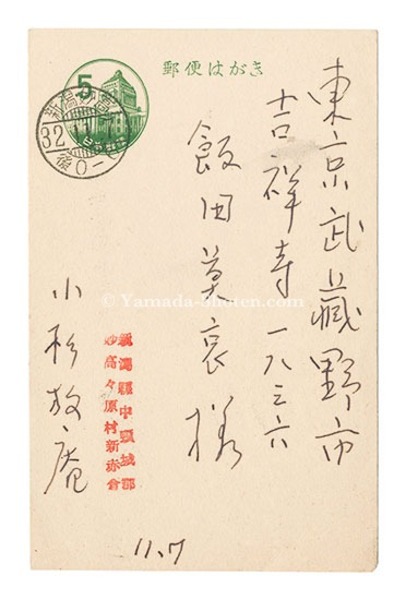 郵便はがき
5
東京武蔵野市
吉祥寺一八三六
飯田莫哀様
小杉放庵
新潟縣中頸城郡
妙高々原村新赤倉
32
後0-6
11.7
© Yamada-Shoten.com